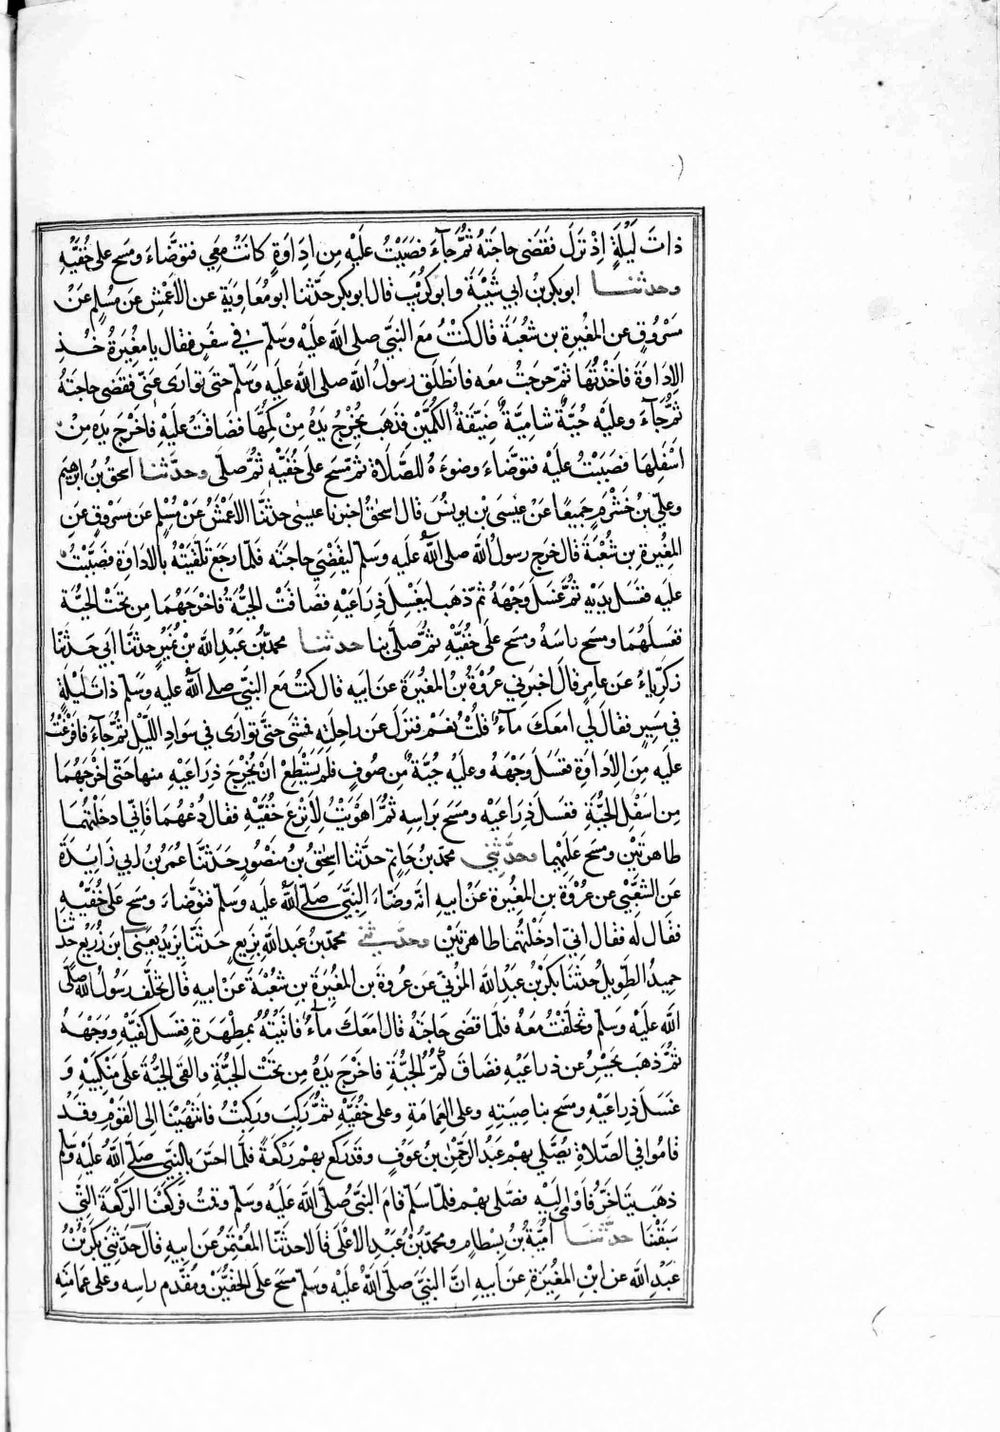 ذاتَ لَيْلَةٍ اِذْ نَزَلَ فَقَضى حاجَتَهُ ثُمَّ جَآءَ فَصَبَبْتُ عَلَيْهِ مِن اِدَاوَةٍ كانَتْ مَعِي فتوَضَّاءَ ومَسَح على خُفَّيْهِ
وحدثنا ابوبكر بن ابي شَيْبَةَ وابو كُرَيْب قال ابوبكر حَدّثنا ابو مُعَاوِيَةَ عن الاَعْمَشِ عن مُسْلِمٍ عَنْ
مَسْرُوقٍ عن المُغِيرَةِ بن شُعْبَةَ قال كُنْتُ مَعَ النبّى صلى الله عَلَيْهِ وسَلّم في سَفَرٍ فقال يا مغِيرَةُ خُذِ
الاِدَاوَةَ فاَخَذْتُهَا ثمّ خرَجتُ معَه فانطَلَق رسولُ الله صلى الله عليه وَسَلّم حتى توارَى عَنّى فقَضى حاجتَهُ
ثُمَّ جَآءَ وعليه جُبَّةٌ شاميَّةٌ ضَيّقَةُ الكُمَّيْن فذَهَب يُخرِجُ يدَهُ مِن كُمّهَا فضَاقَتْ عليهِ فاَخْرَج يدَه مِنْ
اَسْفَلِهَا فصَبَبْتُ علَيْهِ فتوَضّاءَ وضوءَهُ للصَّلاةِ ثم مَسَح علَى خُفَّيْهِ ثُمَّ صلّى وحدّثنا اسحقُ بنُ ابرهيمَ
وعليُّ بنُ خَشْرَمٍ جَميعًا عَن عِيسَى بنِ يونُسَ قال اسحقُ اخبرنا عيسى حدثنَا الاَعْمَشُ عَنْ مُسْلِمٍ عن مَسْروقٍ عَنِ
المُغِيرَةِ بنِ شُعْبَةَ قال خرَج رسولُ الله صلى اللهُ عليه وسَلّم ليَقْضِيَ حاجتَه فلَمّا رجَعَ تلَقَّيْتُهُ بالاداوَةِ فصَبَبْتُ
عليه فغَسَل يدَيْهِ ثُمّ غَسَلَ وَجْهَهُ ثمّ ذهَب ليَغْسِلَ ذِرَاعَيْهِ فضَاقَتْ الجُبَّةُ فاَخْرَجَهُمَا مِن تَحْتِ الجُبَّةِ
فغسَلَهُمَا ومسَح راسَهُ ومسَح علَى خُفَّيْهِ ثمُّ صلّى بنا حدثنا محمدُ بنُ عَبْدِ الله بنِ نُمَيْرٍ حدثَنَا ابي حَدثَنَا
زكرِيَّاءُ عَن عامِرٍ قال اخبرَني عُروَةُ بنُ المُغيرَةِ عَن ابيه قال كنتُ مَعَ النبيّ صلى اللهُ عليه وسَلّم ذاتَ ليْلَةٍ
في سَيرٍ فقالَ لي امَعَكَ مآءٌ قلتُ نعَمْ فنَزَل عَن راحِلَتِهِ فمشَى حَتَّى توارَى في سَوادِ اللَّيْلِ ثُمّ جَآءَ فاَفرَغْتُ
عليه مِنَ الاِداوَةِ فغَسَلَ وجْهَهُ وعليه جُبَّةٌ مِن صُوفٍ فلم يَسْتَطِعْ اَنْ يُخْرِجَ ذِرَاعَيْهِ منها حَتّى اخرَجَهُمَا
مِن اَسْفَلِ الجُبَّةِ فغسَلَ ذِرَاعَيْه ومَسَحَ برَاسِهِ ثُمّ اَهْوَيْتُ لاَنْزِعَ خُفَّيْهِ فقال دَعْهُمَا فاِنّي ادخَلْتُهُما
طاهرَتَيْنِ ومسَح علَيْهِما وحدّثني محمّدُ بنُ حَاتِمٍ حدثنا اسحقُ بنُ مَنصُورٍ حَدَثنَا عُمَرُ بنُ ابي زَايدَةَ
عَنِ الشّعْبيّ عن عُروَةَ بنِ المغِيرَةِ عَنْ ابيهِ انّه وضّاءَ النبيَّ صَلّى اللهُ عليه وسَلّم فتوَضّاءَ ومسَح علَى خُفَّيْهِ
فقال له فقال انّي ادخَلْتُهُما طاهرتَيْن وحدّثني محمدُ بنُ عبد الله بن بَزِيعٍ حَدثنَا يزيدُ يعني ابنَ زُرَيْعٍ حدثنا
حميدٌ الطّويلُ حدثنا بكرُ بنُ عبدِ الله المُزَنيّ عَن عُروةَ بن المُغيرَةِ بنِ شُعْبَةَ عَنْ ابيهِ قال تخلّف رَسُولُ الله صلّى
الله علَيْهِ وسَلّم وتخلّفْتُ معَهُ فلَمّا قضَى حاجَتَهُ قال امَعَكَ مآءٌ فاَتَيْتُهُ بِمِطْهَرَةٍ فغسَل كفَّيْهِ ووَجْهَهُ
ثُمّ ذهَب يحْسِرُ عن ذراعَيْهِ فضَاقَ كُمُّ الجُبَّةِ فاَخْرَجَ يدَهُ مِن تحْتِ الجُبَّةِ والقَى الجُبَّةَ علَى مَنْكِبَيْهِ وَ
غَسَلَ ذِراعَيْهِ ومسَح بناصِيَتِهِ وعلى العِمَامَةِ وعلى خُفَّيْهِ ثُمّ رَكِبَ ورَكِبْتُ فانتَهَيْنَا اِلى القَوْمِ وقَدْ
قامُوا في الصّلاةِ يُصَلّي بهِمْ عَبدُ الرّحمٰنِ بنُ عَوْفٍ وقَد رَكَع بهِمْ رَكْعَةً فلَمّا احَسَّ بالنبيّ صَلّى اللهُ علَيْهِ وسَلّم
ذهَب يتَاخّرُ فاَوْمٰى اِلَيْهِ فصَلّى بهِمْ فلَمّا سَلّمَ قامَ النبيُّ صَلّى اللهُ عليْهِ وسَلّم وقمتُ فرَكَعْنَا الرّكْعَةَ الّتي
سَبَقْنَا حدّثنا اُمَيَّةُ بنُ بِسْطامٍ ومحمدُ بنُ عَبْدِ الاَعْلَى قالا حدثنَا المُعْتَمِرُ عَن ابيهِ قال حَدّثني بَكرُ بْنُ
عَبْدِ الله عن ابنِ المُغِيرَةِ عن ابيهِ اَنّ النبيَّ صَلّى اللهُ عَلَيْهِ وسَلّم مسَحَ علَى الخُفّيْنِ ومُقَدَّمِ راسِه وعلى عِمَامَتِهِ